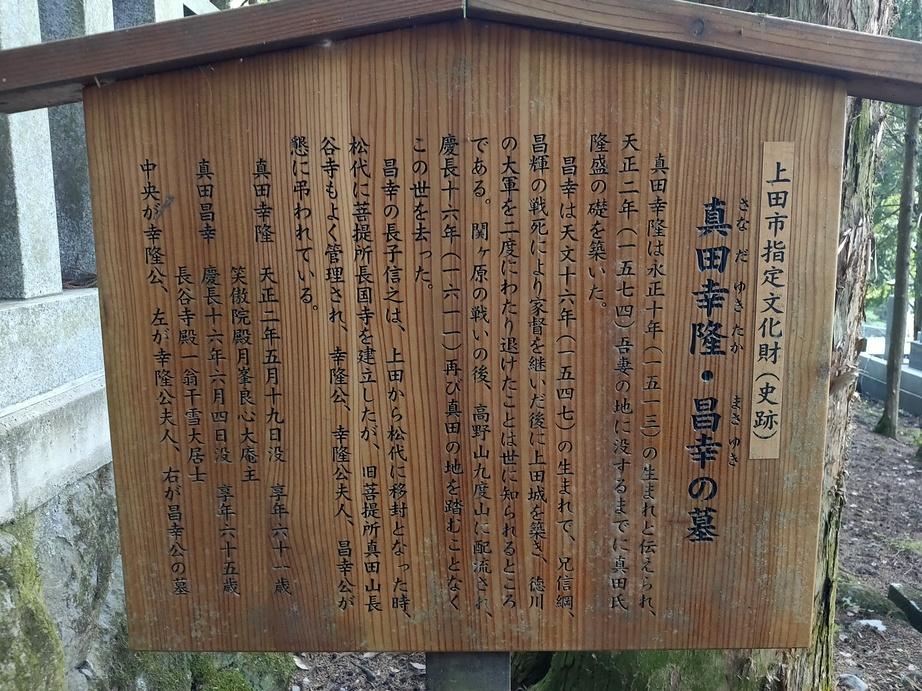 上田市指定文化財(史跡)
さなだゆきたか まさゆき
真田幸隆・昌幸の墓
真田幸隆は永正十年(一五一三)の生まれと伝えられ、
天正二年(一五七四)吾妻の地に没するまでに真田氏
隆盛の礎を築いた。
昌幸は天文十六年(一五四七)の生まれで、兄信綱、
昌輝の戦死により家督を継いだ後に上田城を築き、徳川
の大軍を二度にわたり退けたことは世に知られるところ
である。関ヶ原の戦いの後、高野山九度山に配流され、
慶長十六年(一六一一)再び真田の地を踏むことなく
この世を去った。
昌幸の長子信之は、上田から松代に移封となった時、
松代に菩提所長国寺を建立したが、旧菩提所真田山長
谷寺もよく管理され、幸隆公、幸隆公夫人、昌幸公が
懇に弔われている。
真田幸隆 天正二年五月十九日没 享年六十一歳
笑傲院殿月峯良心大庵主
真田昌幸 慶長十六年六月四日没 享年六十五歳
長谷寺殿一翁干雪大居士
中央が幸隆公、左が幸隆公夫人、右が昌幸公の墓